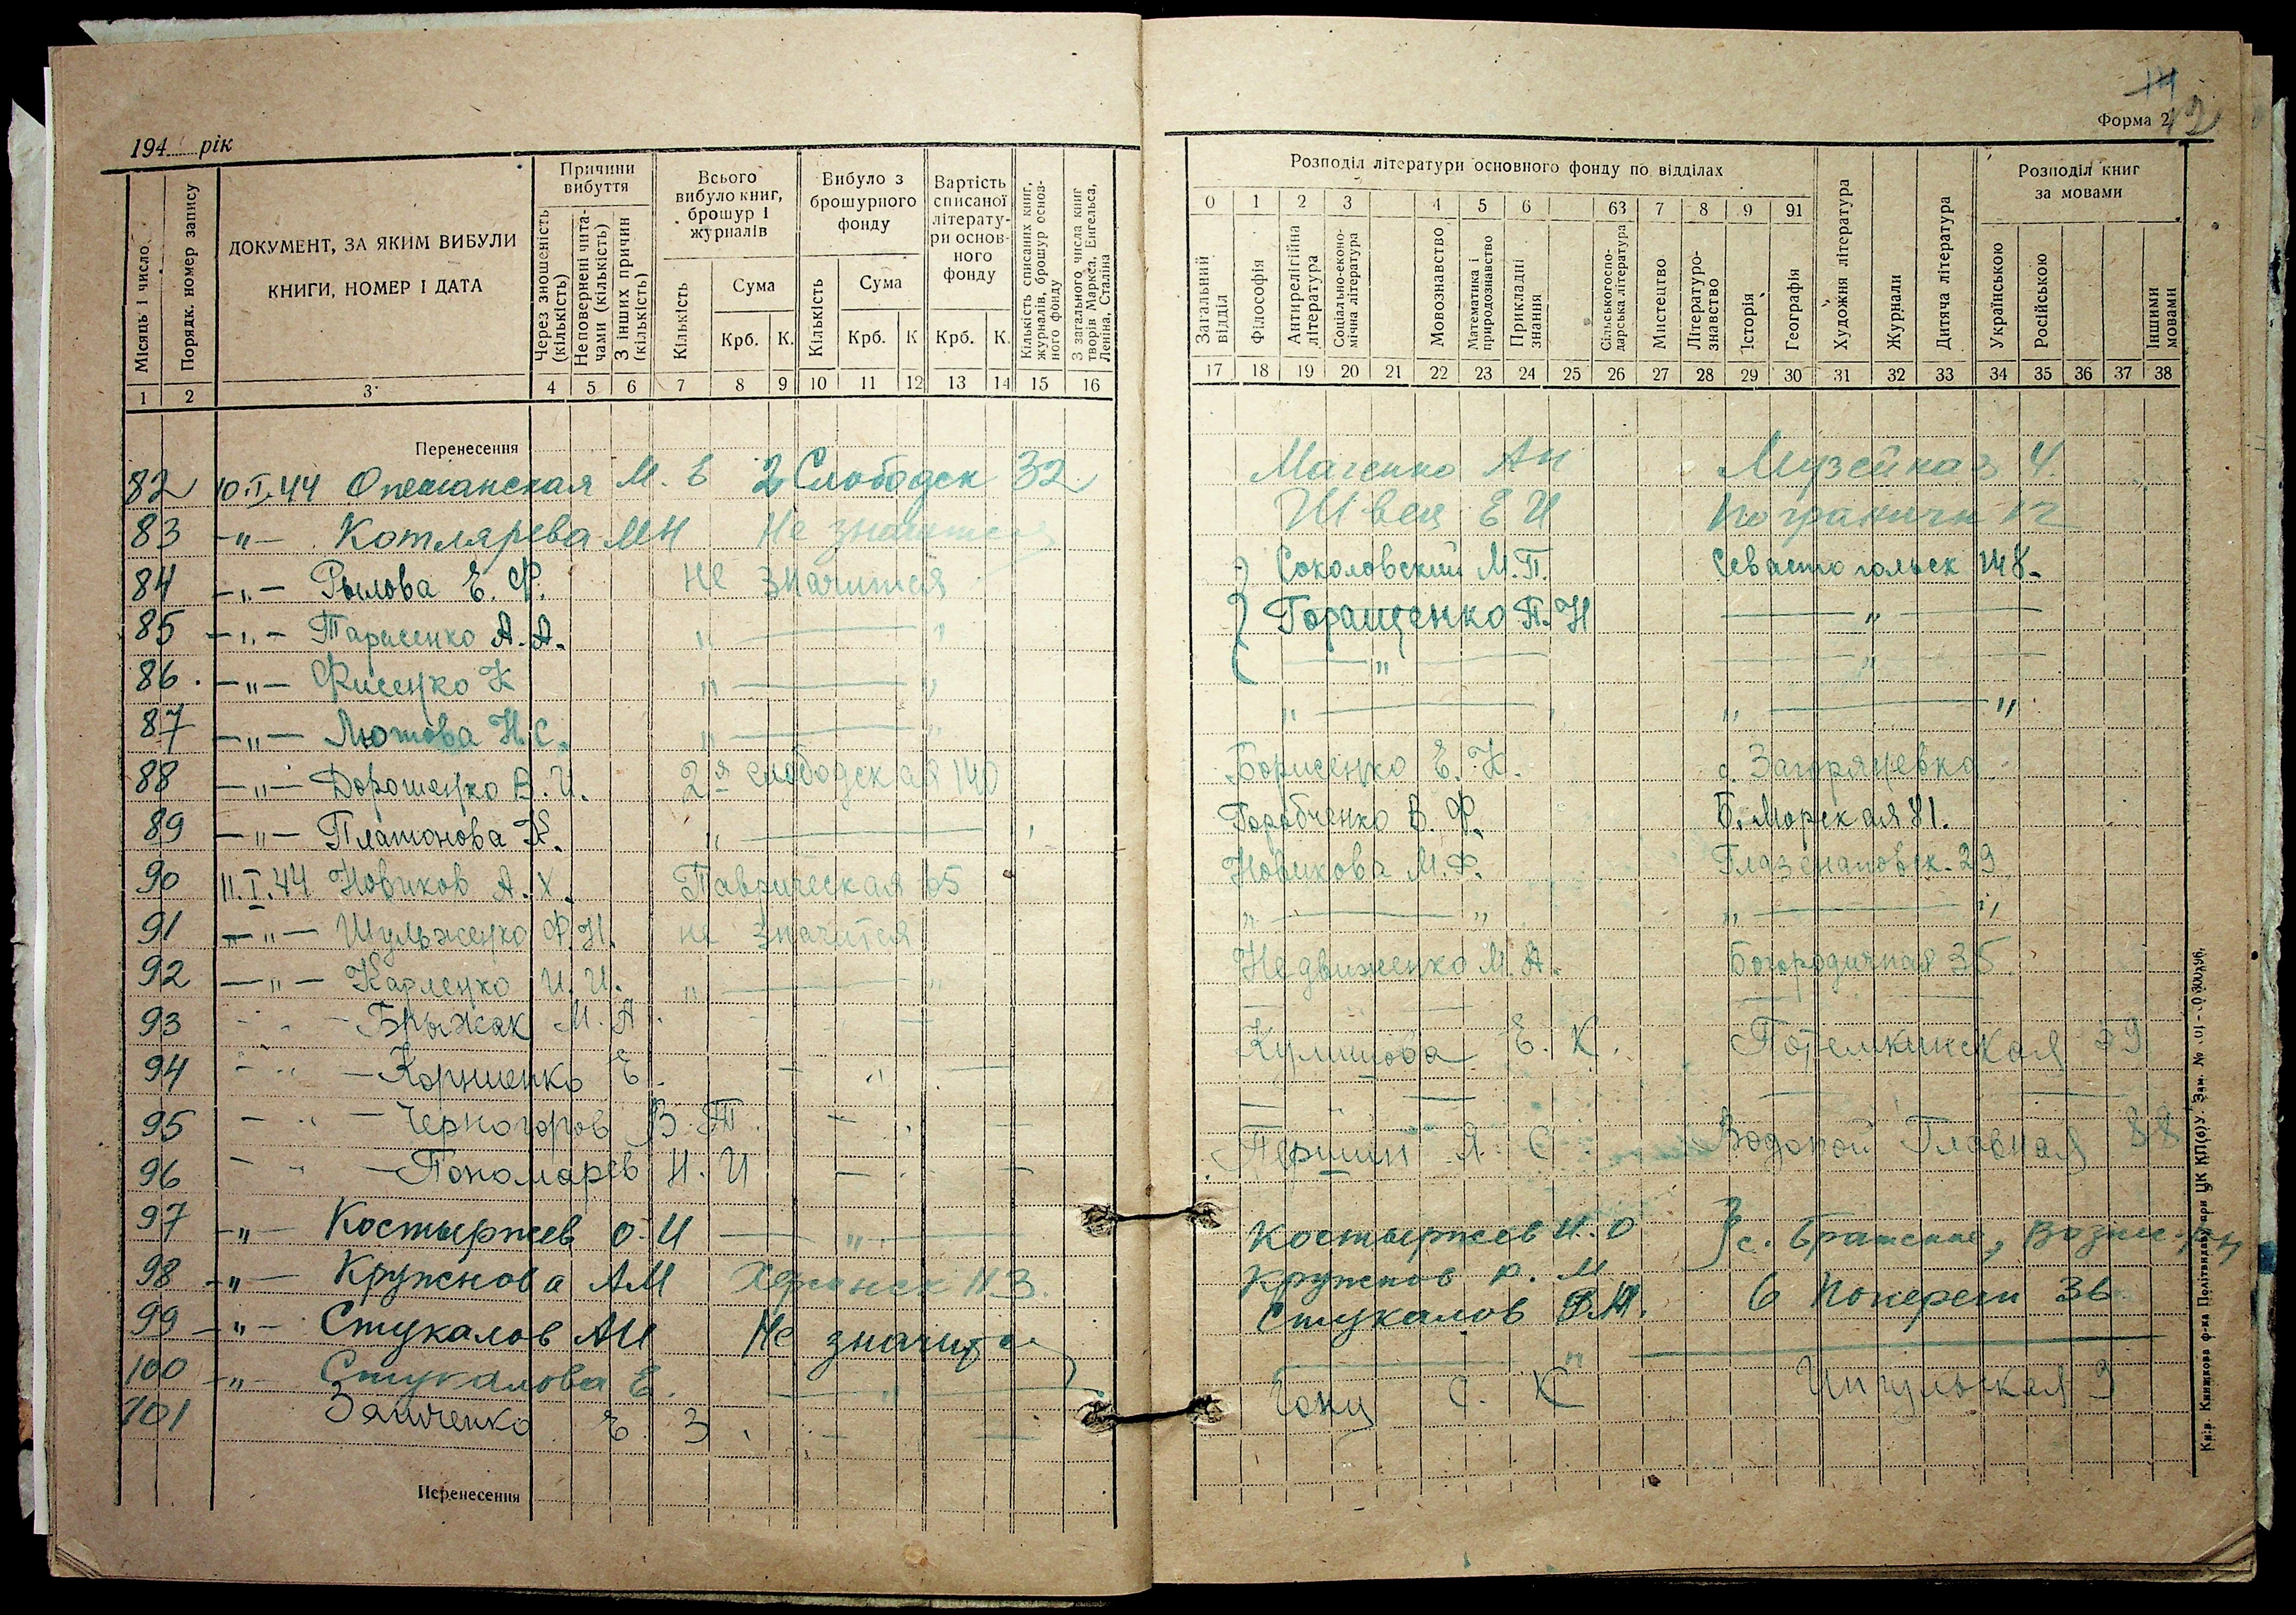 194 рік
Форма 2
12
Місяць і число
Порядк. номер запису
ДОКУМЕНТ, ЗА ЯКИМ ВИБУЛИ
КНИГИ, НОМЕР І ДАТА
Причини вибуття
Через зношеність (кількість)
Неповернені читачами (кількість)
З інших причин (кількість)
Всього вибуло книг, брошур і журналів
Кількість
Сума
Крб. К.
Вибуло з брошурного фонду
Кількість
Сума
Крб. К
Вартість списаної літератури основного фонду
Крб. К.
Кількість списаних книг, журналів, брошур основного фонду
З загального числа книг творів Маркса, Енгельса, Леніна, Сталіна
1 2 3 4 5 6 7 8 9 10 11 12 13 14 15 16
Розподіл літератури основного фонду по відділах
0 1 2 3 4 5 6 63 7 8 9 91
Загальний відділ
Філософія
Антирелігійна література
Соціально-економічна література
Мовознавство
Математика і природознавство
Прикладні знання
Сільськогосподарська література
Мистецтво
Літературознавство
Історія
Географія
Художня література
Журнали
Дитяча література
Розподіл книг за мовами
Українською
Російською
Іншими мовами
17 18 19 20 21 22 23 24 25 26 27 28 29 30 31 32 33 34 35 36 37 38
Перенесення
82 10.I.44 М. Е 2 Слободск 32 Ан 4
83 -"- Котлярева МН Не значится Швец Е И Погранични 12
84 -"- Рылова Е. Ф. не значится Соколовский М.П. Севастопольск 148
85 -"- Тарасенко А.А. " — " Горащенко П.Н — " —
86 -"- Фисенко К " — " — " — — " —
87 -"- Лютова Н.С. " — " " — " — "
88 -"- Дорошенко В.И. 2я слободская 140 Борисенко Е. К. с. Загоряневка
89 -"- Платонова К. " — Горобченко В. Ф. Б. Морская 81.
90 11.I.44 Новиков А.Х. Таврическая 65 Новикова М.Ф. Глазенаповск. 29
91 -"- Шульженко Ф.Н. не значится " — " " — "
92 -"- Карленко И.И. " — " Недвиженко М.А. Богородичная 35
93 - " - Брыжак М.А.
94 - " - Корниенко Е. — " — Кулишова Е. К. Потемкинская 39
95 - " - Черногоров В. П.
96 - " - Пономарев Н. И Першин Я. С. Водопой Главная 88
97 -"- Костыржев О. И — " — Костыржев И. О с. Братское,
98 -"- Кружнова АМ Херсонск Кружнов
99 -"- Стукалов АИ Не значится Стукалов 6 Поперечн 36
100 -"- Стукалова Е. — " — — " —
101 Заиченко Е. З. С. К Ингульская 9
Перенесення